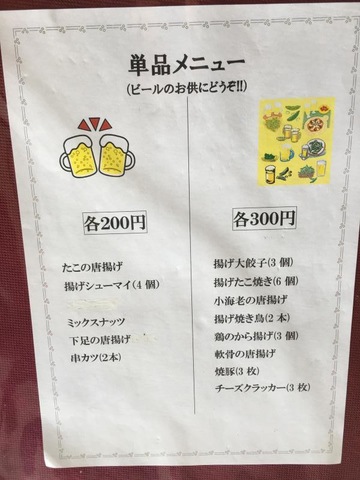 単品メニュー
(ビールのお供にどうぞ!!)
各200円
たこの唐揚げ
揚げシューマイ(4 個)
ミックスナッツ
下足の唐揚げ
串カツ(2本)
各300円
揚げ大餃子(3 個)
揚げたこ焼き(6 個)
小海老の唐揚げ
揚げ焼き鳥(2 本)
鶏のから揚げ(3 個)
軟骨の唐揚げ
焼豚(3 枚)
チーズクラッカー(3 枚)